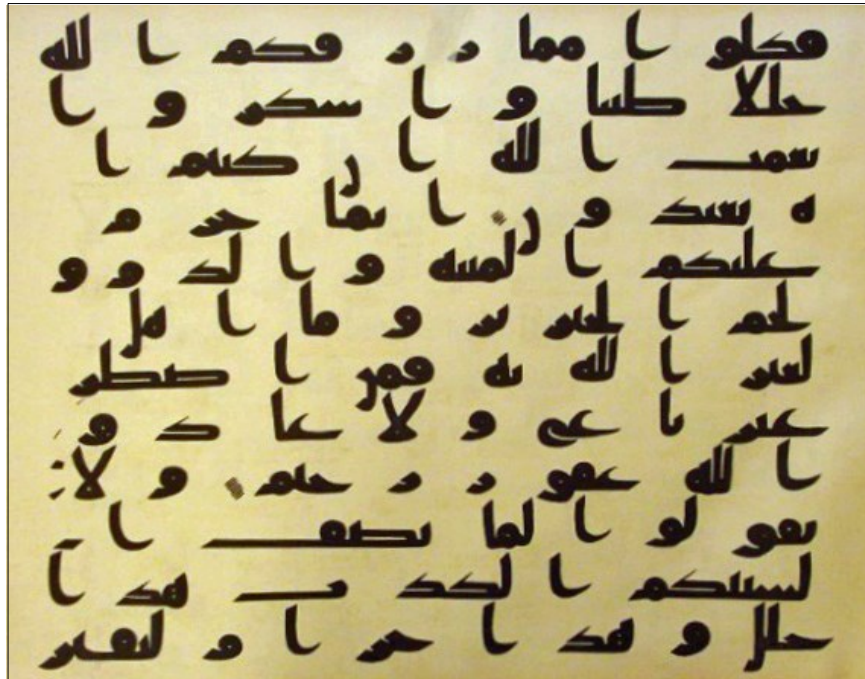 فكلوا مما رزقكم الله
حللا طيبا واشكروا
نعمت الله ان كنتم ا
ياه تعبدون انما حرم
عليكم الميته والدم و
لحم الخنزير وما اهل
لغير الله به فمن اضطر
غير باغ ولا عاد فان
الله غفور رحيم ولا
تقولوا لما تصف ا
لسنتكم الكذب هذا
حلل وهذا حرام لتفتر